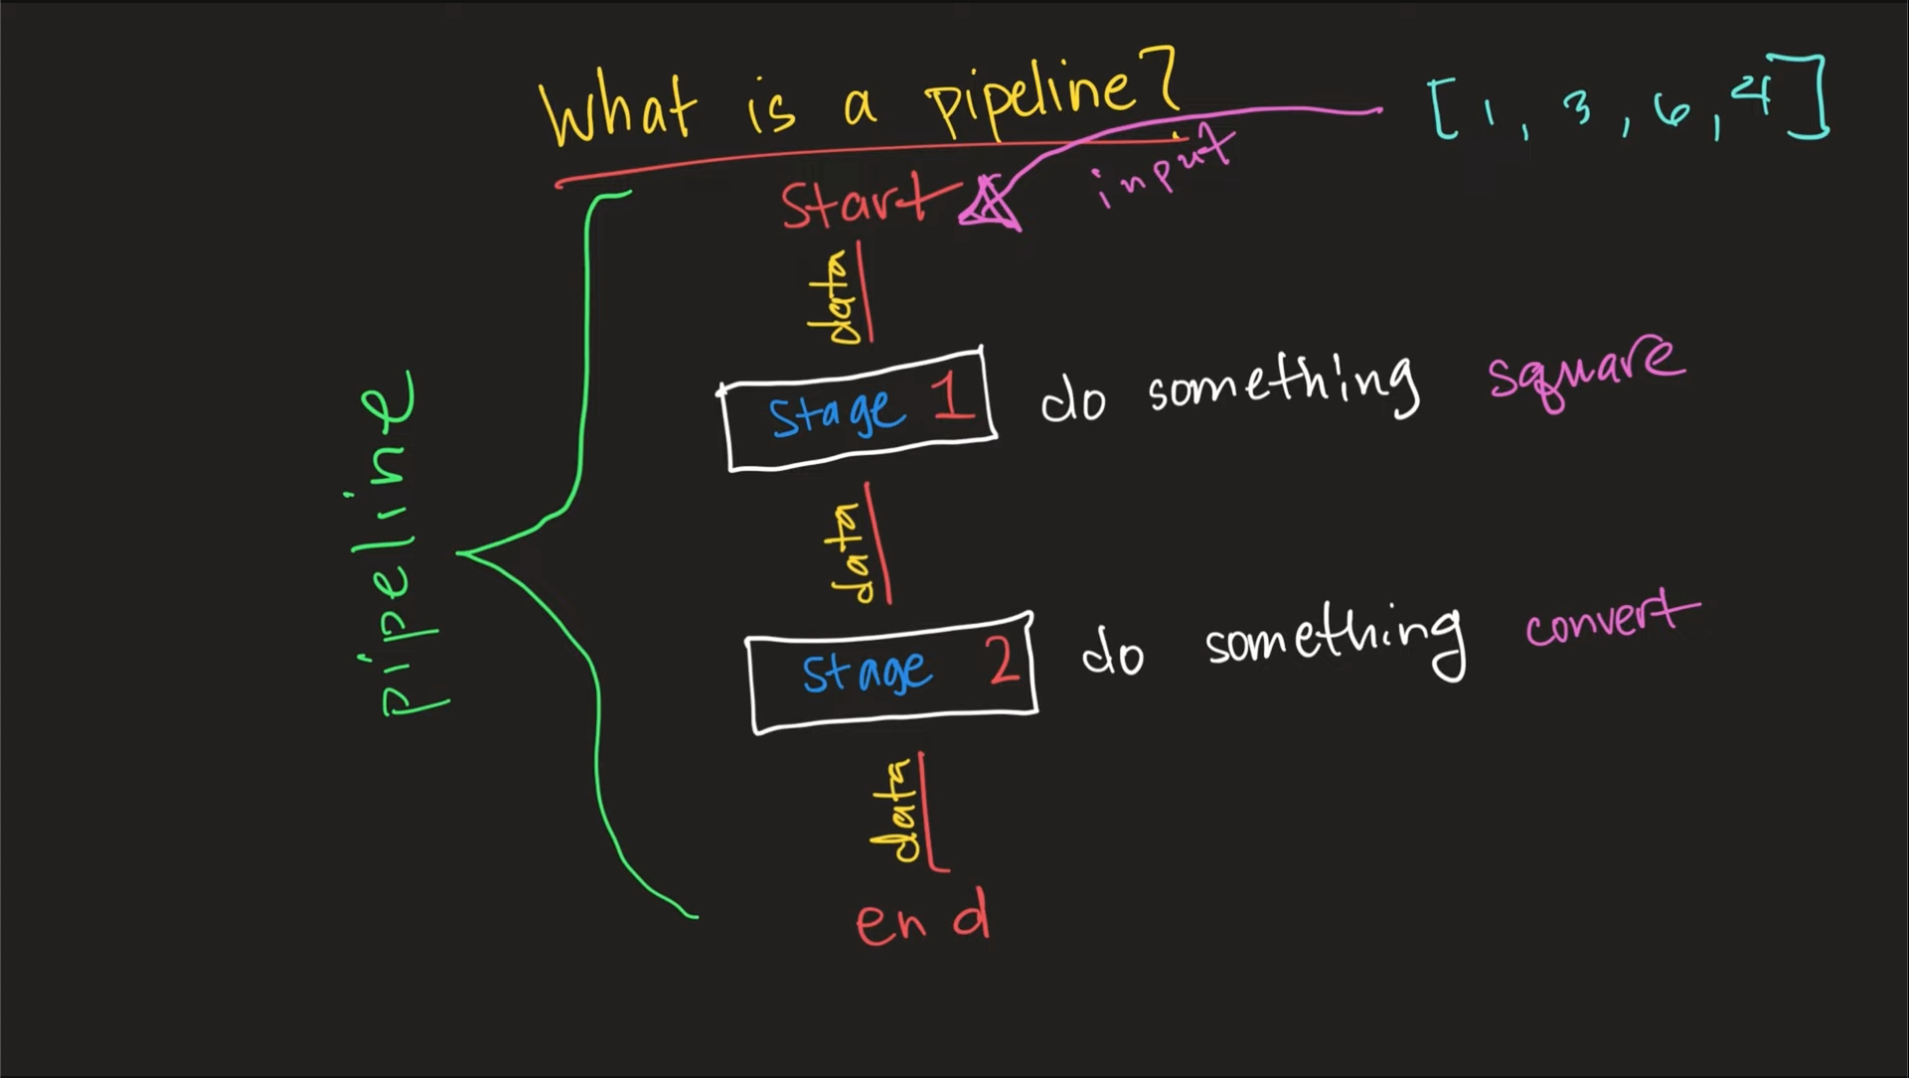 What is a pipeline?
[1, 3, 6, 4]
input
start
data
stage 1 do something square
data
pipeline
stage 2 do something convert
data
end